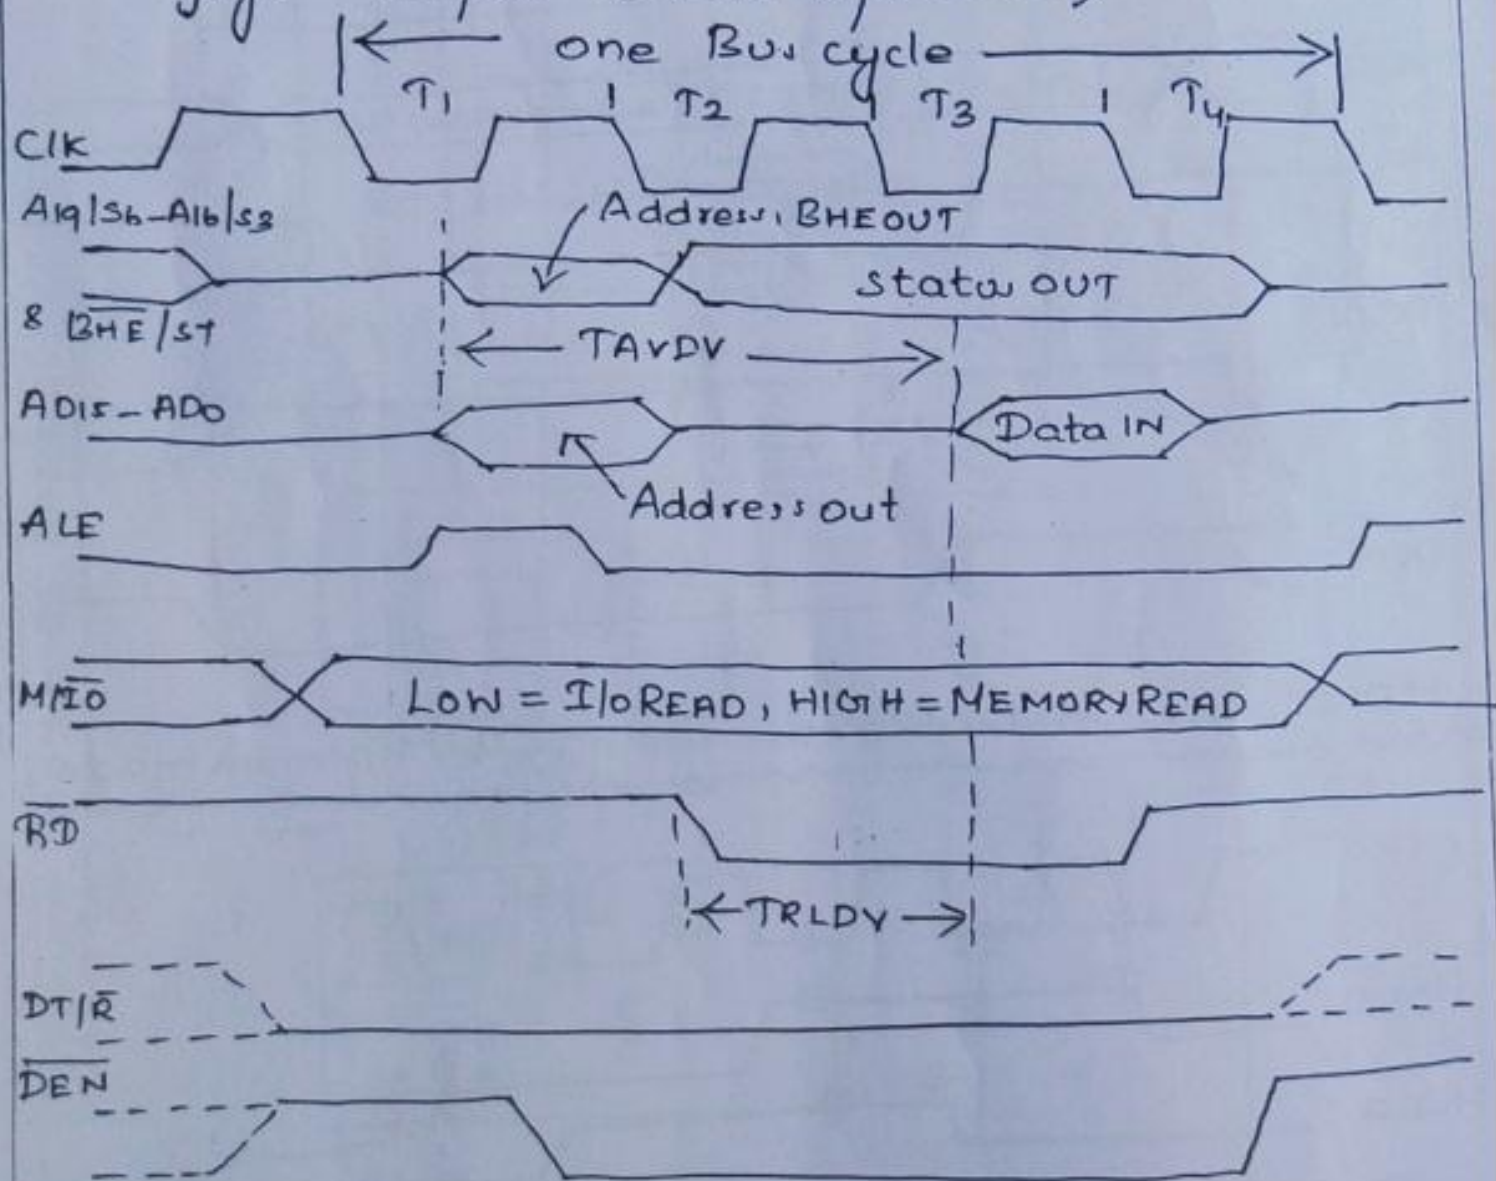 one Bus cycle
T1 T2 T3 T4
Clk
A19/S6-A16/S3
Address, BHE OUT
status OUT
& B̅H̅E̅/S7
TAVDV
AD15-AD0
Data IN
Address out
ALE
M/I̅O̅
LOW = I/O READ, HIGH = MEMORY READ
R̅D̅
TRLDV
DT/R̅
D̅E̅N̅